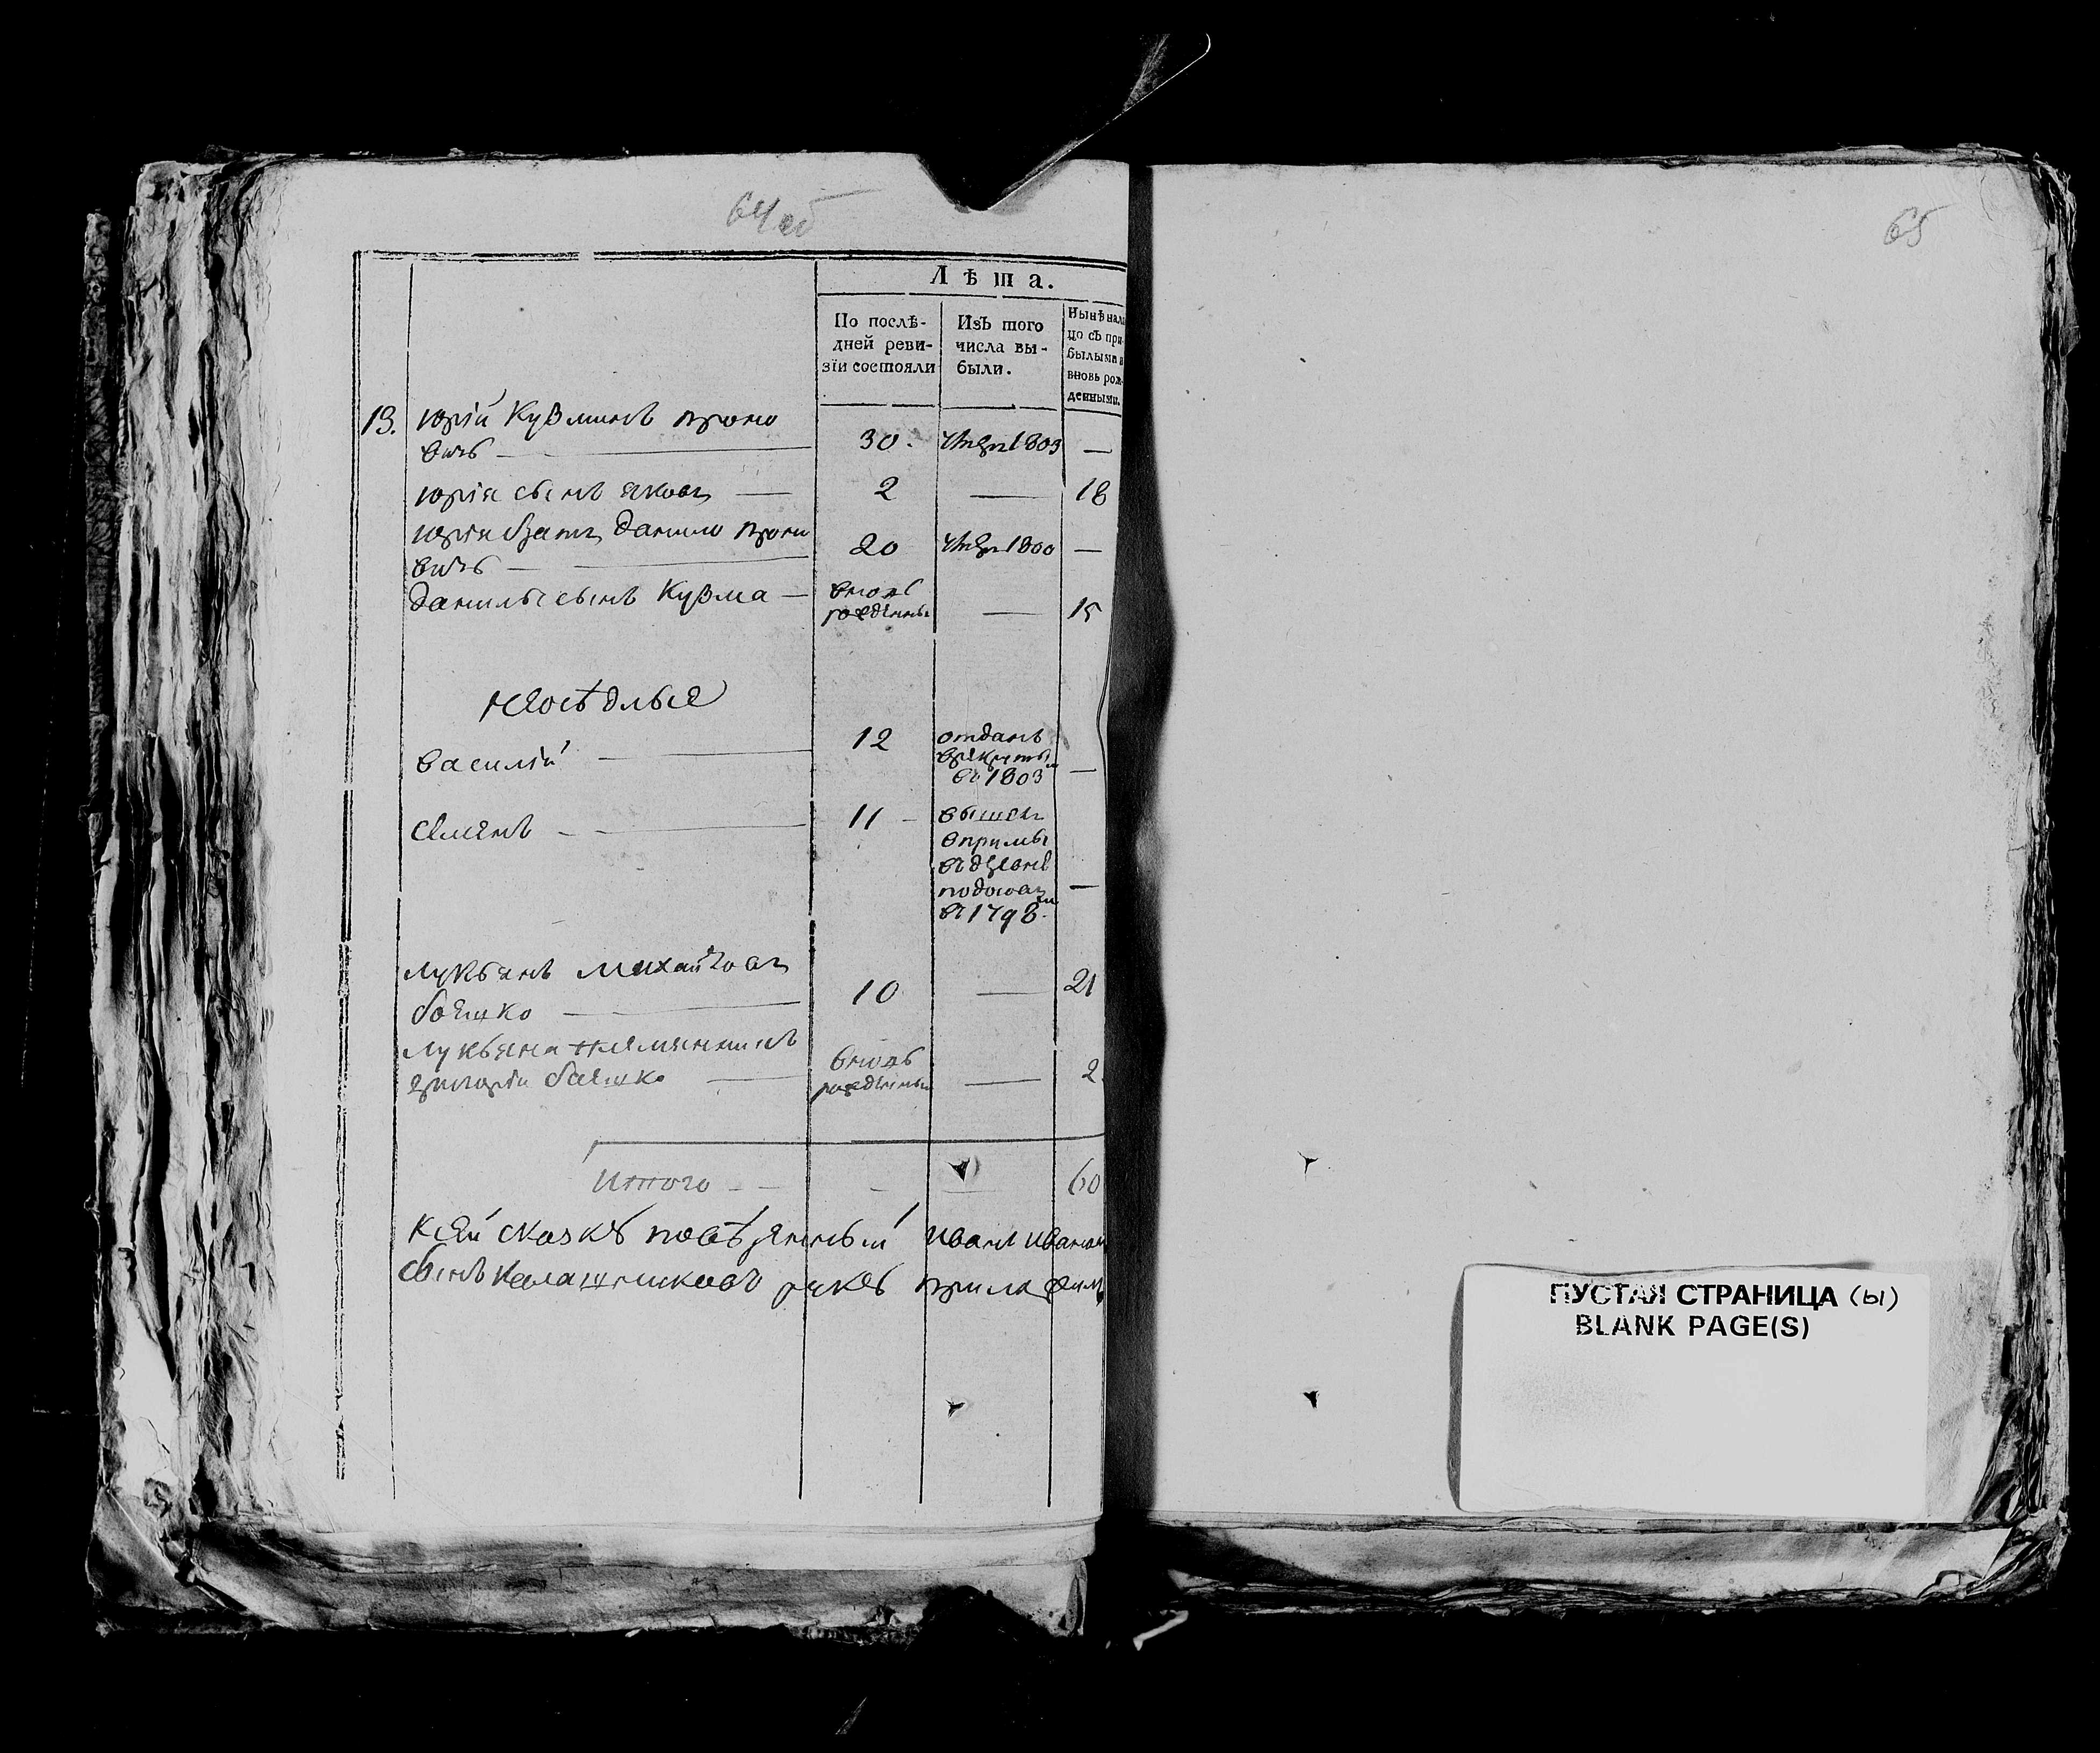 64 об
Лѣта.
По послѣ-
дней реви-
зіи состояли
Изъ того
числа вы-
были.
Нынѣ нали
цо съ при
былыми и
вновь рож
денными.
13. Юрій Кузминъ
вичь — 30. 1803 —
Юрія сынъ Яковъ — 2 — 18
Юрія братъ Данило
вичь — 20 1800 —
Данилы сынъ Кузма — вновь
рожденны — 15
Неосѣдлые
Василій — 12 отданъ
в рекруты
въ 1803 —
Семенъ — 11 вышелъ
въ
въ 1798. —
Лукьянъ Михайловъ
— 10 — 21
Лукьяна племянникъ
Григорій — вновь
рожденны — 2
Итого — — — — 60
К сей сказкѣ повѣренный Иванъ Иванов
сынъ Калашниковъ руку приложилъ
65
ПУСТАЯ СТРАНИЦА (ы)
BLANK PAGE(S)